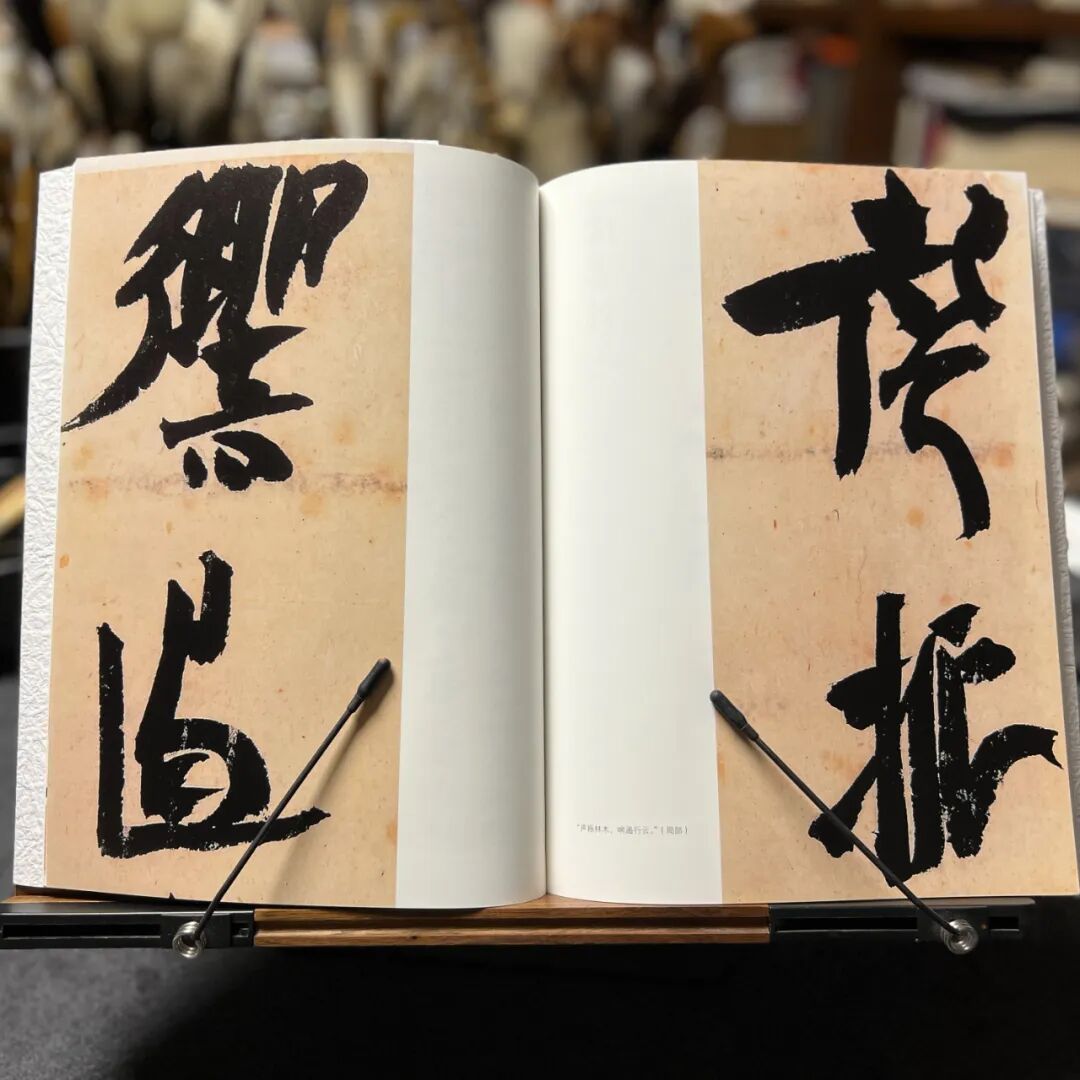 聲振
"声振林木,响遏行云。"(局部)
響遏